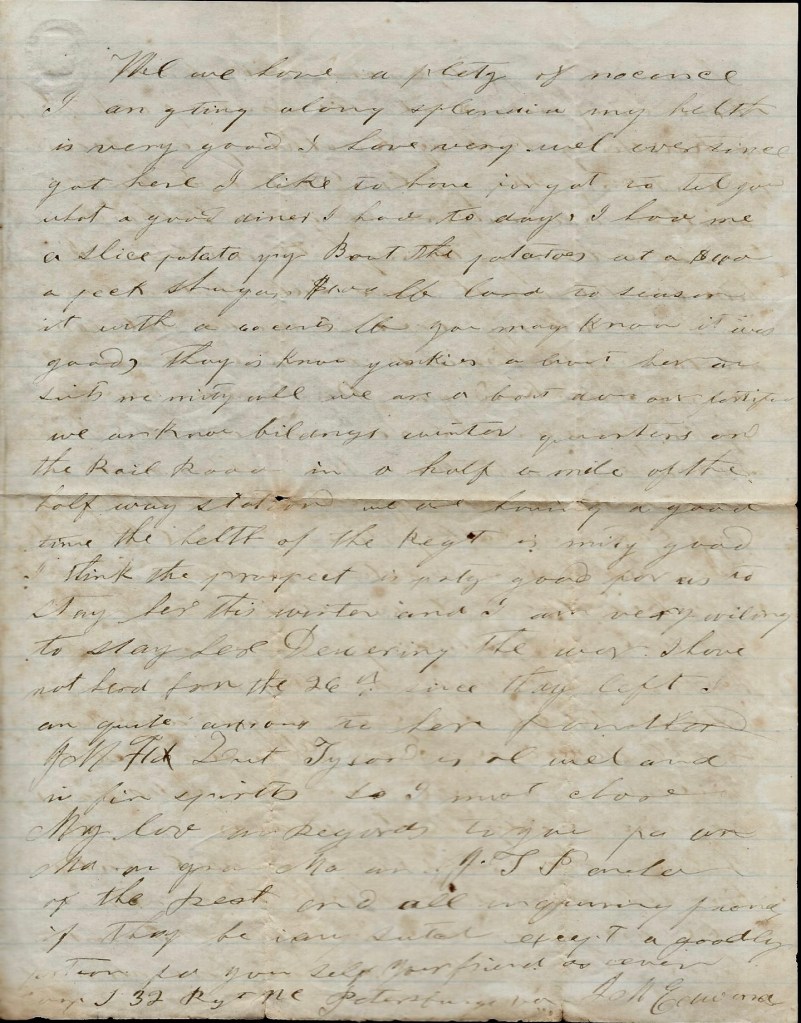 Wel we have a plety of
I am gting along splendid my helth
is very good I have very wel ever since I
got here I like to have forgot to tel you
what a good diner I had to day I had me
a slice potato py Bout the potatoes at a
a peck Shugar lb lard to season
it with a lb you may know it was
good, thay is know yankies a bout her
we are a bout
we ar know bildings winter quarters on
the Rail Road in a half a mile of the
half way station we are having a good
time the helth of the Regt is mity good
I think the prospect is prty good for us to
stay her this winter and I am very wilong
to stay her Deuering the war. I have
not herd from the 26th since thay left I
am quite anxious to her from
J M Lieut Tyson is al wel and
in fin spirits so I must close
My love an regards to your pa an
Ma an gran Ma an J. T.
of the rest and all inquiring friends
if thay be except a goodly
portion for your self Your friend as ever
I 32 Rgt NC Petersburg va J M